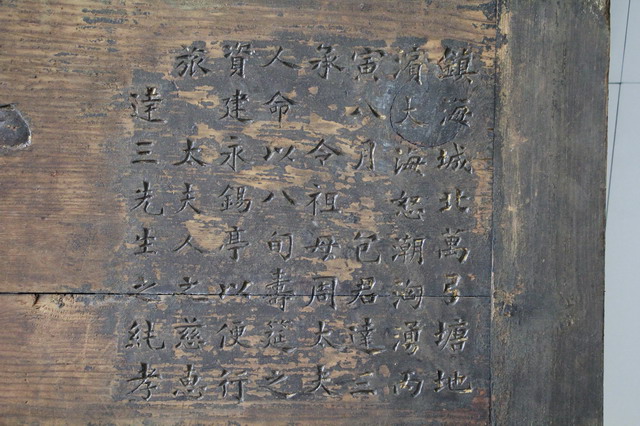 鎮海城北萬弓塘地
濱大海怒潮洶湧丙
寅八月 包君達三
承 令祖母周太夫
人命以八旬壽筵之
資建永錫亭以便行
旅 太夫人之慈惠
達三先生之純孝